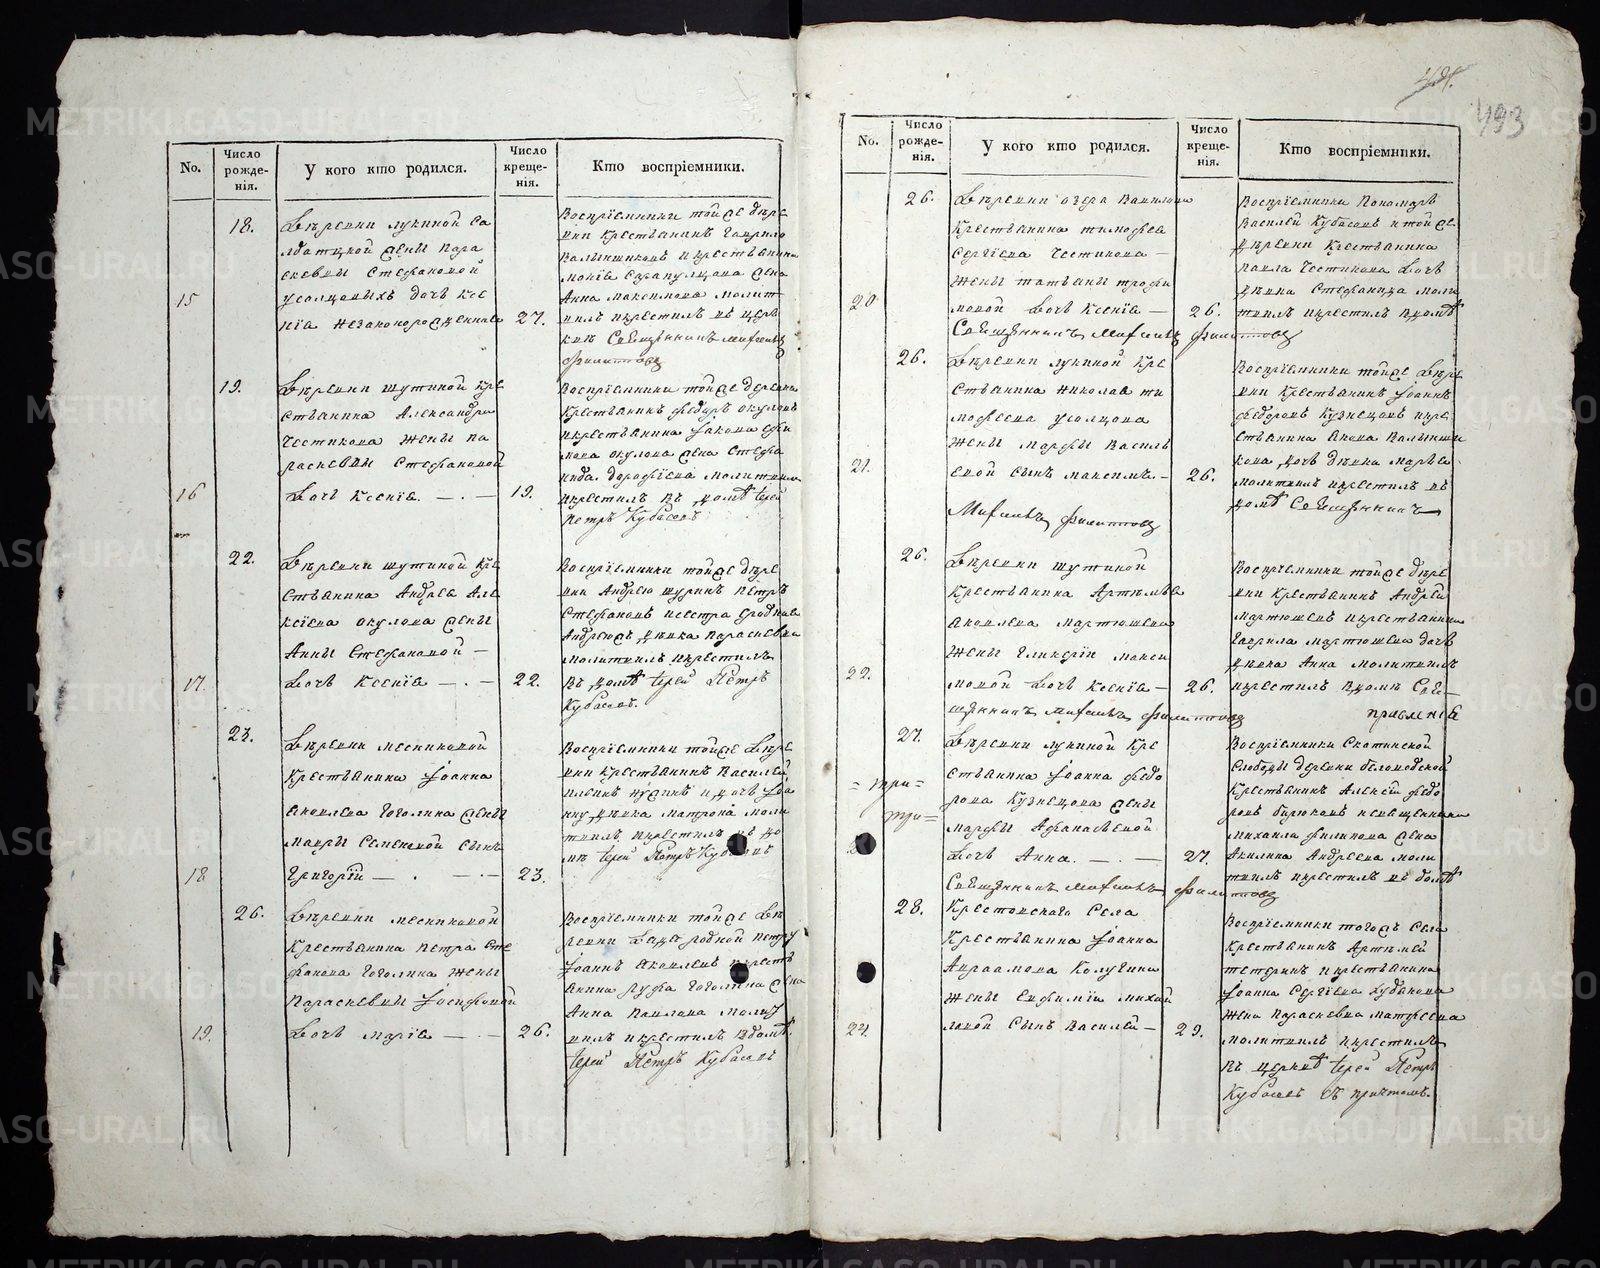 493
No.
Число рожде-нія.
У кого кто родился.
Число креще-нія.
Кто воспріемники.
18.
Деревни лукиной са
лдатской жены пара
скевьи Стефановой
15
усолцовыхъ дочь Ксе
нїа незаконорожденная
27.
воспрїемники тойже дере
вни Крестьянинъ Гаврило
Анна максимова молит
вилъ икрестилъ въ церк
вѣ Священникъ Михаилъ
Филиттовъ
19.
Деревни шутиной Кре
стьянина Александра
Честикова жены па
раскевьи Стефановой
16
Дочь Ксенїа.
19.
воспрїемники тойже деревни
Крестьянинъ федоръ окуловъ
икрестьянина Іакова
окулова жена Стефа
нида дорофеева молитвилъ
икрестилъ въ домѣ Іерей
Петръ Кубасовъ
22.
Деревни шутиной Кре
стьянина Андреа Але
ксїева окулова жены
Анны Стефановой
17
Дочь Ксенїа
22.
воспрїемники тойже дере
вни Андрею шуринъ Петръ
Стефановъ исестра родная
Андреюжъ девка параскевиа
молитвилъ икрестилъ
въ домѣ Іерей Петръ
Кубасовъ.
23.
Деревни месниковой
Крестьянина Іоанна
Аковлева Гоголина жены
мавры Семеновой сынъ
18
Григорїй
23.
воспрїемники тойже дере
вни Крестьянинъ василей
дочь Іоа
нну девка матрона моли
твилъ икрестилъ въ до
мѣ Іерей Петръ Кубасовъ
26.
Деревни месниковой
Крестьянина петра Сте
фанова Гоголина жены
параскевьи Іосифовой
19.
Дочь марїа
26.
воспрїемники тойже де
ревни дядя родной петру
Іоаннъ Аковлевъ икресть
анина луки Гоголина жена
Анна павлова молит
вилъ икрестилъ вдомѣ
Іерей Петръ Кубасовъ
No.
Число рожде-нія.
У кого кто родился.
Число креще-нія.
Кто воспріемники.
26.
Деревни озера вавилова
Крестьянина тимофеа
Сергїева Честикова
жены татьаны трофи
20
мовой Дочь Ксенїа
26.
воспрїемники пономарь
василей Кубасовъ итойже
деревни Крестьянина
павла Честикова дочь
девка Стефанида моли
твилъ икрестилъ вдомѣ
Священникъ Михаилъ Филиттовъ
26.
Деревни лукиной Кре
стьянина николаа ти
мофеева усолцова
жены марфы василь
21.
евой сынъ максимъ.
26.
воспрїемники тойже дере
вни Крестьянинъ Іоаннъ
федоровъ Кузнецовъ икре
стьянина Акова
дочь девка марьа
молитвилъ икрестилъ въ
домѣ Священникъ
Михаилъ Филиттовъ
26.
Деревни шутиной
Крестьянина Артемьа
Аковлева мартюшева
жены Гликерїи макси
22.
мовой Дочь Ксенїа
26.
воспрїемники тойже дере
вни Крестьянинъ Андрей
мартюшевъ икрестьянина
Гаврила мартюшева дочь
девка Анна молитвилъ
икрестилъ вдомѣ Свя
щенникъ Михаилъ Филиттовъ
правленїа
27.
Деревни лукиной Кре
стьянина Іоанна федо
рова Кузнецова жены
марфы Афанасьевой
Дочь Анна.
27.
воспрїемники Скатинской
Слободы деревни беломоевой
Крестьянинъ Алексїй федо
ровъ бирюковъ
михаила филипова жена
Акилина Андреева моли
твилъ икрестилъ въ домѣ
Священникъ Михаилъ Филиттовъ
= три =
28.
Крестовскаго Села
Крестьянина Іоанна
Авраамова Калугина
жены Евфимїи михай
24.
ловой сынъ василей
29.
воспрїемники тогожъ Села
Крестьянинъ Артемей
тетеринъ икрестьянина
Іоанна Сергїева худакова
жена параскевиа матфеева
молитвилъ икрестилъ
въ церквѣ Іерей Петръ
Кубасовъ съ причтомъ.